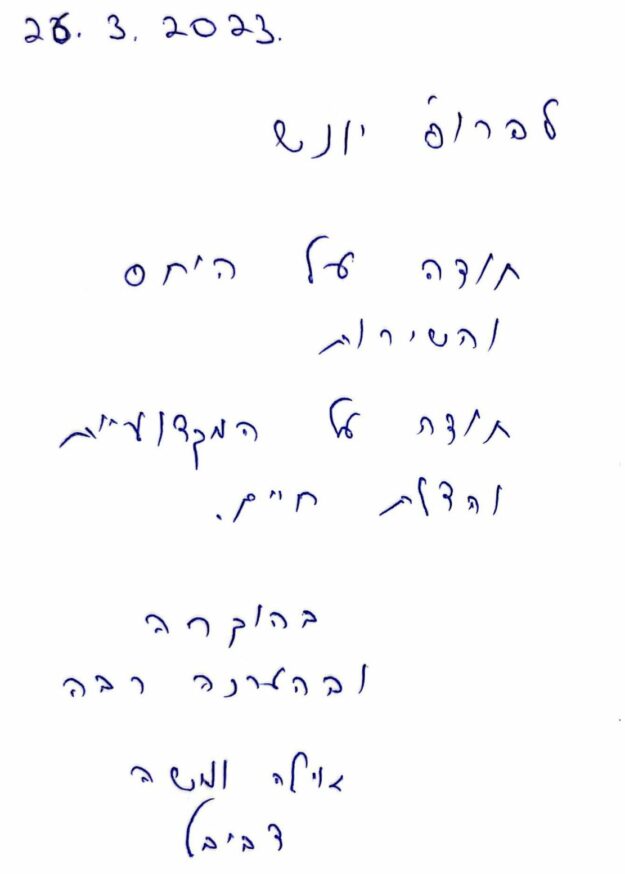 26.3.2023.
לפרופ' יונש
תודה על היחס
והשירות
תודה על המקצועיות
והצלת חיים.
בהוקרה
ובהערכה רבה
אוילה ומשה
דביבל